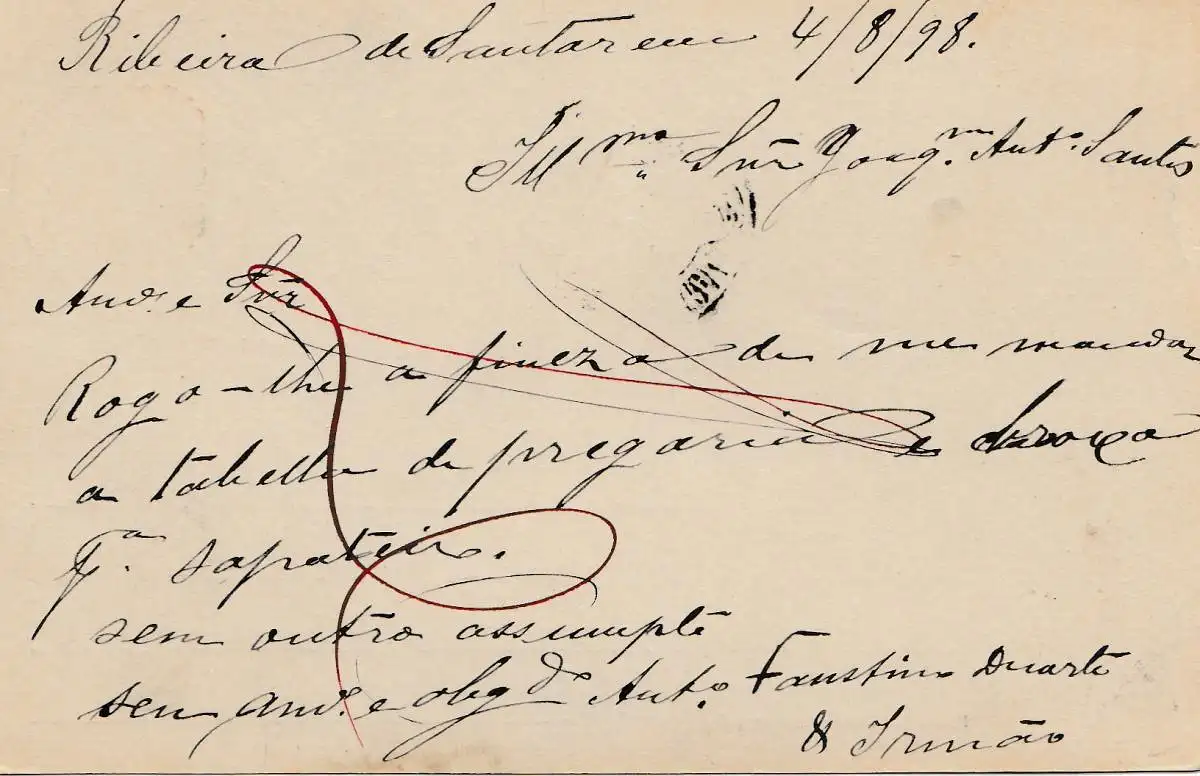 Ribeira de Santarem 4/8/98.
Ill.mo Snr Joaq.m Ant.o Santos
Am.o e Snr
Rogo-lhe a fineza de me mandar
a tabella de pregaria e
p.a sapateiro.
sem outro assumpto
seu am.o e obg.do Ant.o Faustino Duarte
& Irmão